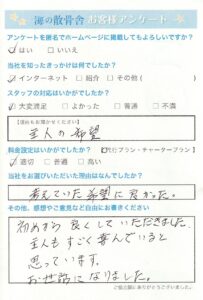 海の散骨舎 お客様アンケート
アンケートを匿名でホームページに掲載してもよろしいですか?
☑はい □いいえ
当社を知ったきっかけは何でしたか?
☑インターネット □紹介 □その他( )
スタッフの対応はいかがでしたか?
☑大変満足 □よかった □普通 □不満
【理由もお聞かせください】
主人の希望
料金設定はいかがでしたか?
代行プラン・チャータープラン
☑適切 □普通 □高い
当社をお選びいただいた理由はなんでしたか?
考えていた希望に合かった。
その他、感想やご意見など自由にお書きください
初めから良くしていただきました
主人もすごく喜んでいると
思っています。
お世話になりました。
ご協力誠にありがとうございました。